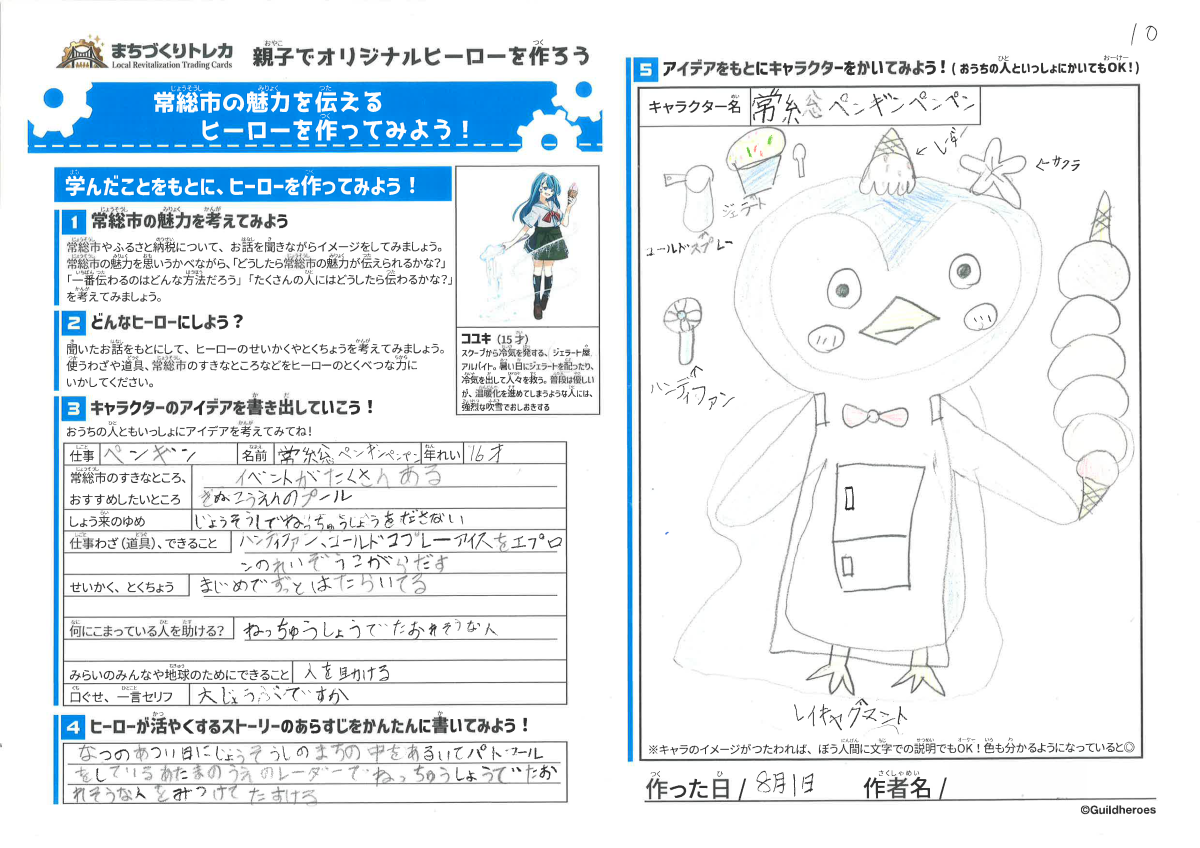 10
まちづくりトレカ
Local Revitalization Trading Cards
親子でオリジナルヒーローを作ろう
常総市の魅力を伝える
ヒーローを作ってみよう！
学んだことをもとに、ヒーローを作ってみよう！
1 常総市の魅力を考えてみよう
常総市やふるさと納税について、お話を聞きながらイメージをしてみましょう。
常総市の魅力を思いうかべながら、「どうしたら常総市の魅力が伝えられるかな？」
「一番伝わるのはどんな方法だろう」「たくさんの人にはどうしたら伝わるかな？」
を考えてみましょう。
2 どんなヒーローにしよう？
聞いたお話をもとにして、ヒーローのせいかくやとくちょうを考えてみましょう。
使うわざや道具、常総市のすきなところなどをヒーローのとくべつな力に
いかしてください。
ココユキ（15才）
スクープから冷気を発する、ジェラート屋
アルバイト。暑い日にジェラートを配ったり、
冷気を出して人々を救う。普段は優しい
が、温暖化を進めてしまうような人には、
強烈な吹雪でおしおきする
3 キャラクターのアイデアを書き出していこう！
おうちの人ともいっしょにアイデアを考えてみてね！
仕事 ペンギン 名前 常総ペンギンペンペン 年れい 16才
常総市のすきなところ、
おすすめしたいところ
イベントがたくさんある
きぬこうえんのプール
しょう来のゆめ じょうそうしでねっちゅうしょうをださない
仕事わざ（道具）、できること ハンディファン、コールドスプレーアイスをエプロ
ンのれいぞうこからだす
せいかく、とくちょう まじめでずっとはたらいてる
何にこまっている人を助ける？ ねっちゅうしょうでたおれそうな人
みらいのみんなや地球のためにできること 人を助ける
口ぐせ、一言セリフ 大じょうぶですか
4 ヒーローが活やくするストーリーのあらすじをかんたんに書いてみよう！
なつのあつい日にじょうそうしのまちの中をあるいてパトロール
をしているあたまのうえのレーダーでねっちゅうしょうでたお
れそうな人をみつけてたすける
5 アイデアをもとにキャラクターをかいてみよう！（おうちの人といっしょにかいてもOK！）
キャラクター名 常総ペンギンペンペン
レーダー
サクラ
ジェラート
コールドスプレー
ハンディファン
レイキャグマント
※キャラのイメージがつたわれば、ぼう人間に文字での説明でもOK！色も分かるようになっていると◎
作った日 / 8月1日 作者名 /
©Guildheroes